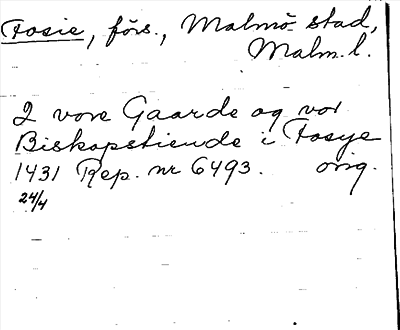 Fosie, förs., Malmö stad,
Malm. l.
2 vore Gaarde og vor
Biskopstiende i Fosye
1431 Rep. nr 6493. orig.
24/4